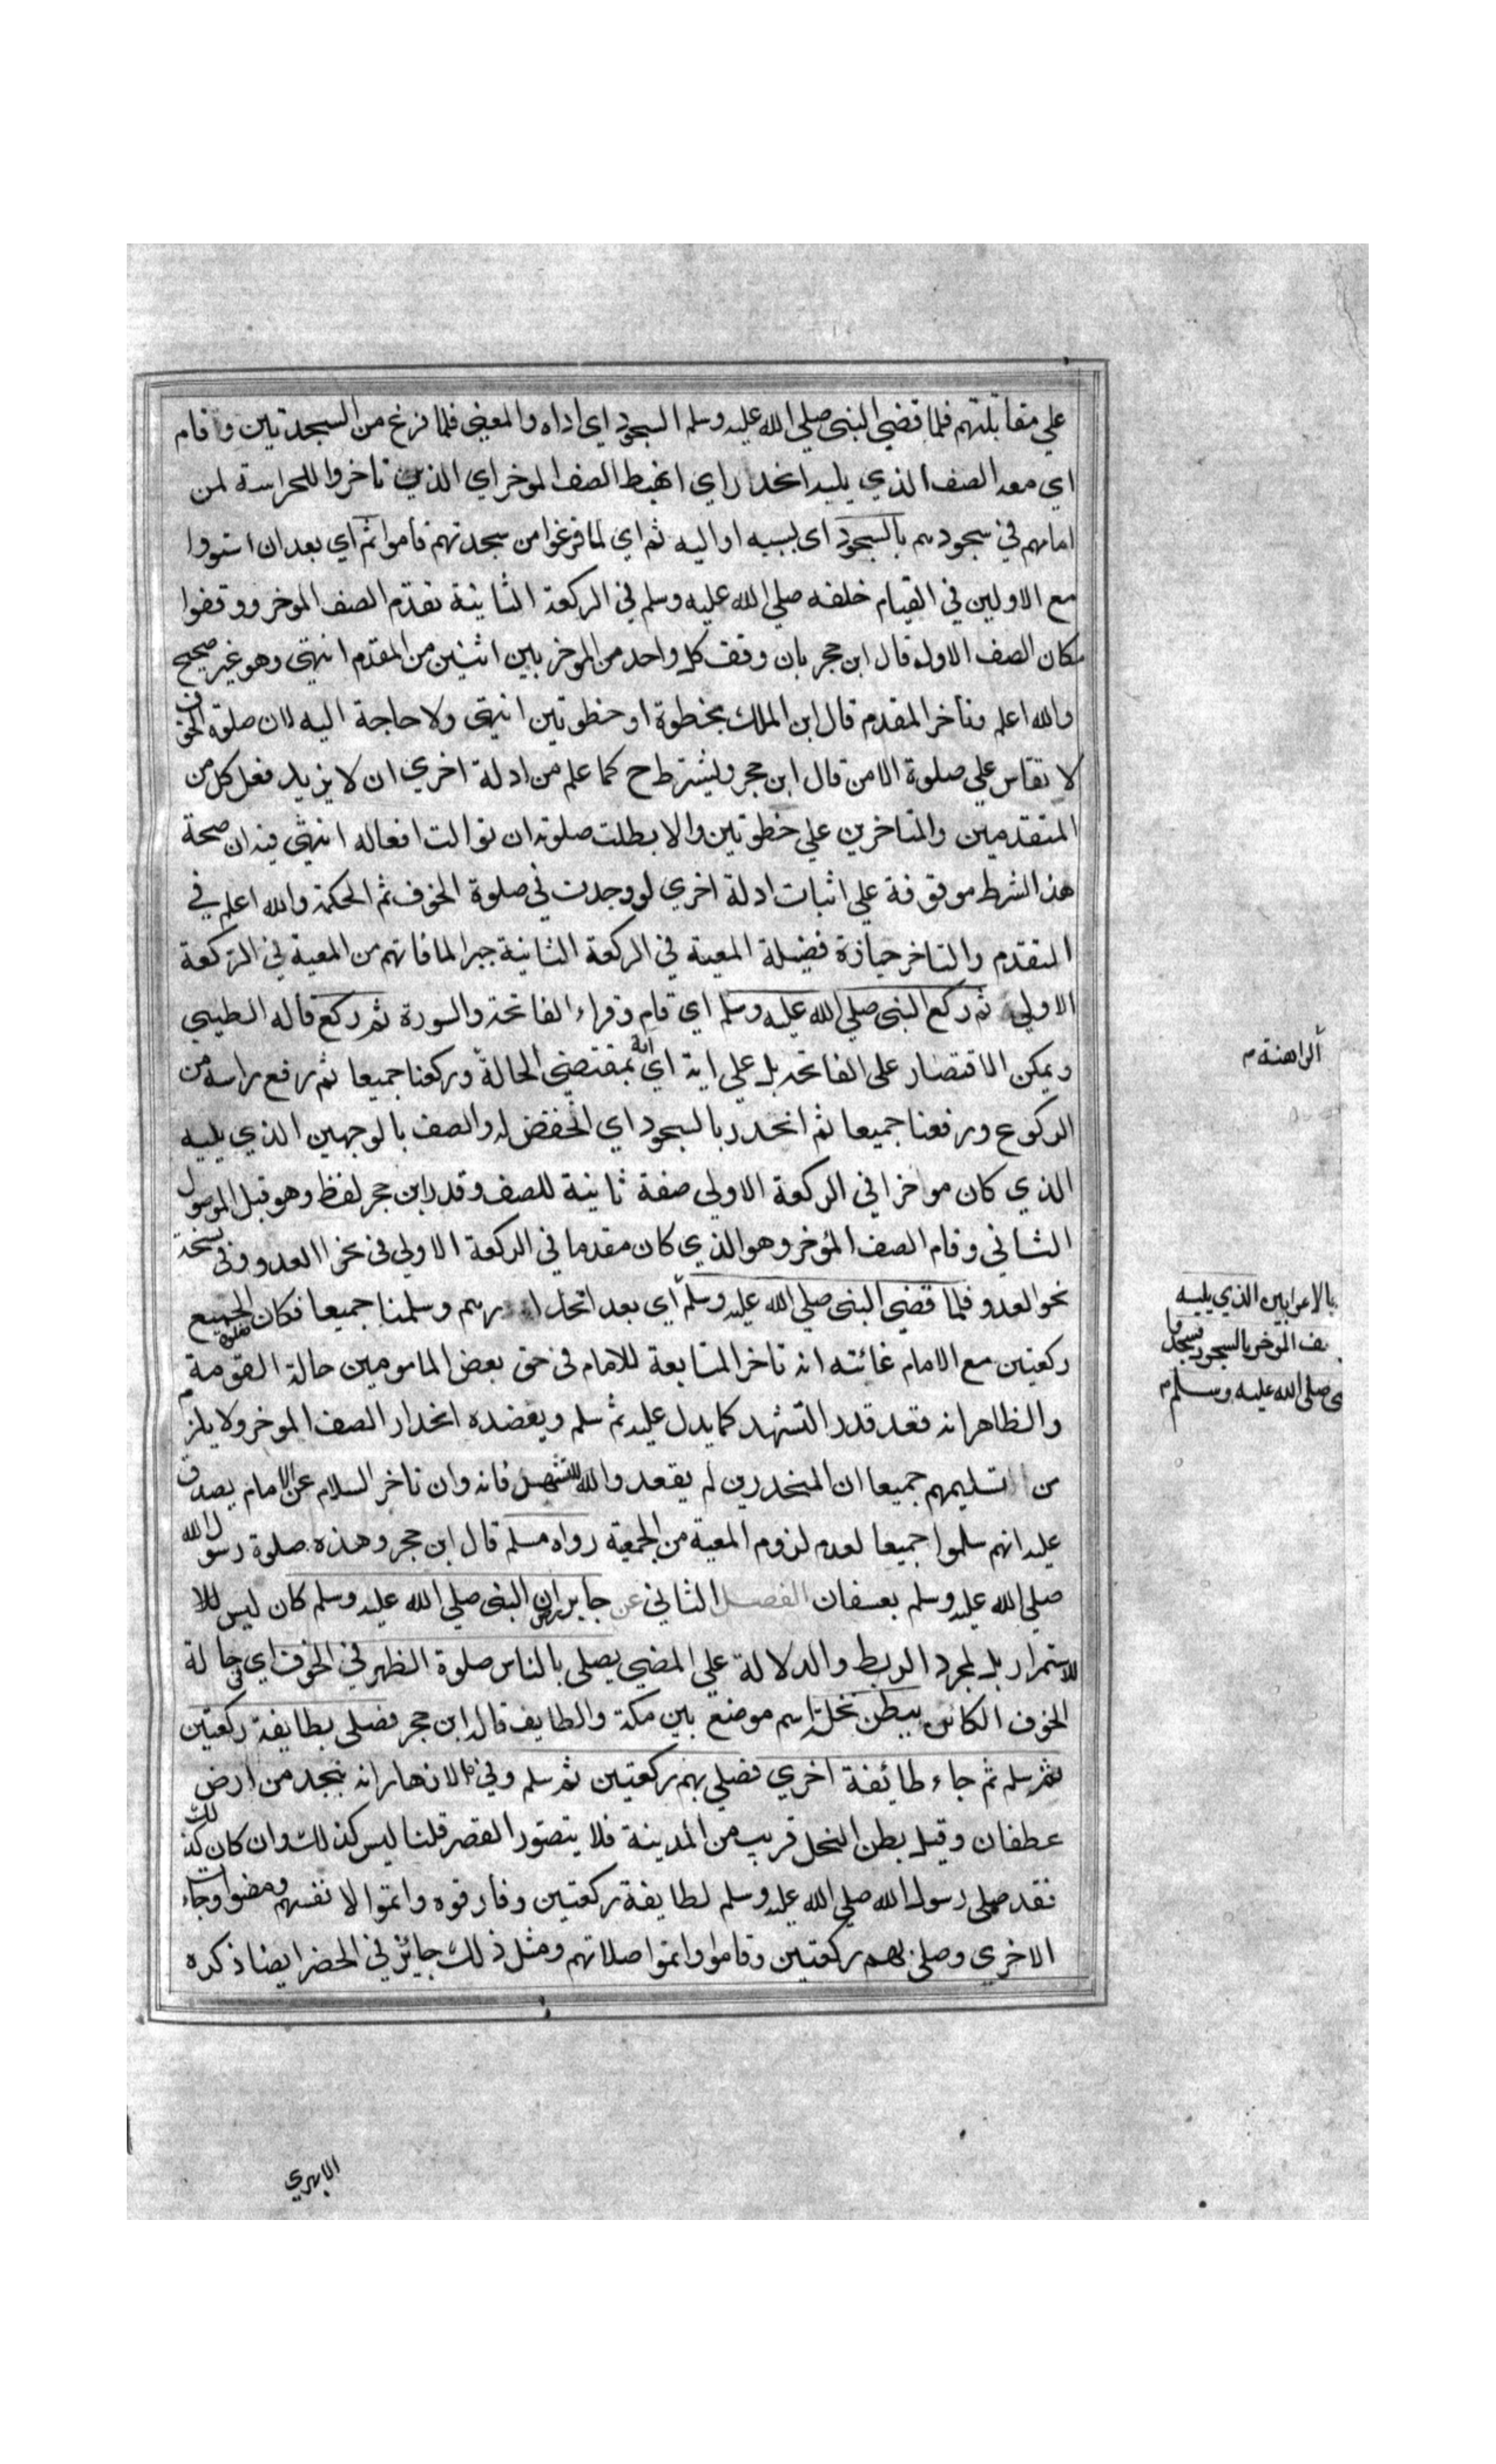 علي مقابلتهم فلما قضي النبي صلي الله عليه وسلم السجود اي اداه والمعني فلما فرغ من السجدتين وقام
اي معه الصف الذي يليه انحدر اي انهبط الصف الموخر اي الذين تاخروا للحراسة لمن
امامهم في سجودهم بالسجود اي بسببه او اليه ثم اي لما فرغوا من سجدتهم قاموا ثم اي بعد ان استووا
مع الاولين في القيام خلفه صلي الله عليه وسلم في الركعة الثانية تقدم الصف الموخر ووقفوا
مكان الصف الاول قال ابن حجر بان وقف كل واحد من الموخر بين اثنين من المقدم انتهي وهو غير صحيح
والله اعلم وتأخر المقدم قال ابن الملك بخطوة او خطوتين انتهي ولا حاجة اليه لان صلوة الخوف
لا تقاس علي صلوة الامن قال ابن حجر ويشترط ح كما علم من ادلة اخري ان لا يزيد فعل كل من
المتقدمين والمتاخرين علي خطوتين والا بطلت صلوته ان توالت افعاله انتهي فيه ان صحة
هذا الشرط موقوفة علي اثبات ادلة اخري لو وجدت في صلوة الخوف ثم الحكمة والله اعلم في
التقدم والتاخر حيازة فضيلة المعية في الركعة الثانية جبرا لما فاتهم من المعية في الركعة
الاولي ثم ركع النبي صلي الله عليه وسلم اي قام وقراء الفاتحة والسورة ثم ركع قاله الطيبي
ويمكن الاقتصار علي الفاتحة بل علي اية اي اية بمقتضي الحالة وركعنا جميعا ثم رفع راسه من
الركوع ورفعنا جميعا ثم انحدر بالسجود اي انخفض له والصف بالوجهين الذي يليه
الذي كان مواخرا في الركعة الاولي صفة ثانية للصف وقدر ابن حجر لفظ وهو قبل الموصول
الثاني وقام الصف المؤخر وهو الذي كان مقدما في الركعة الاولي في نحر العدو وفي نسخة
نحو العدو فلما قضي النبي صلي الله عليه وسلم اي بعد انحدارهم وسلمنا جميعا فكان للجميع
ركعتين مع الامام غائته انه تاخر المتابعة للامام في حق بعض المامومين حالة القومة
والظاهر انه قعد قدر التشهد كما يدل عليه ثم سلم ويعضده انحدار الصف الموخر ولا يلزم
من تسليمهم جميعا ان المنحدرين لم يقعدوا للتشهد فانه وان تاخر السلام عن الامام يصدق
عليه انهم سلموا جميعا لعدم لزوم المعية من الجمعية رواه مسلم قال ابن حجر وهذه صلوة رسول الله
صلي الله عليه وسلم بعسفان الفصل الثاني عن جابر ان النبي صلي الله عليه وسلم كان ليس للا
للاستمرار بل لمجرد الربط والدلالة علي المضي يصلي بالناس صلوة الظهر في الخوف اي في حالة
الخوف الكائن ببطن نخل اسم موضع بين مكة والطايف قال ابن حجر فصلي بطايفة ركعتين
ثم سلم ثم جاء طائفة اخري فصلي بهم ركعتين ثم سلم وفي الازهار انه بنجد من ارض
عطفان وقيل بطن النخل قريب من المدينة فلا يتصور القصر قلنا ليس كذلك وان كان كذلك
فقد صلي رسول الله صلي الله عليه وسلم لطايفة ركعتين وفارقوه واتموا لانفسهم ومضوا وجاءت
الاخري وصلي بهم ركعتين وقاموا واتموا صلاتهم ومثل ذلك جايز في الحضر ايضا ذكره
الراهنة م
بالاعرابين الذي يليه
ف الموخر بالسجود
ي صلي الله عليه وسلم م
الابهري